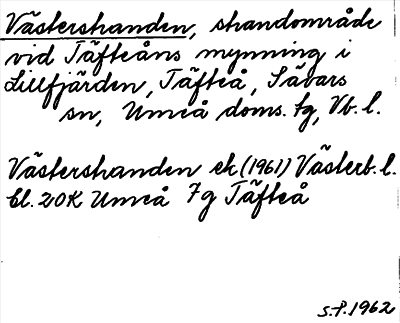 Västerstranden, strandområde
vid Täfteåns mynning i
Lillfjärden, Täfteå, Sävars
sn, Umeå doms. tg, Vb. l.
Västerstranden ek (1961) Västerb. l.
bl. 20K Umeå 7g Täfteå
S.P. 1962